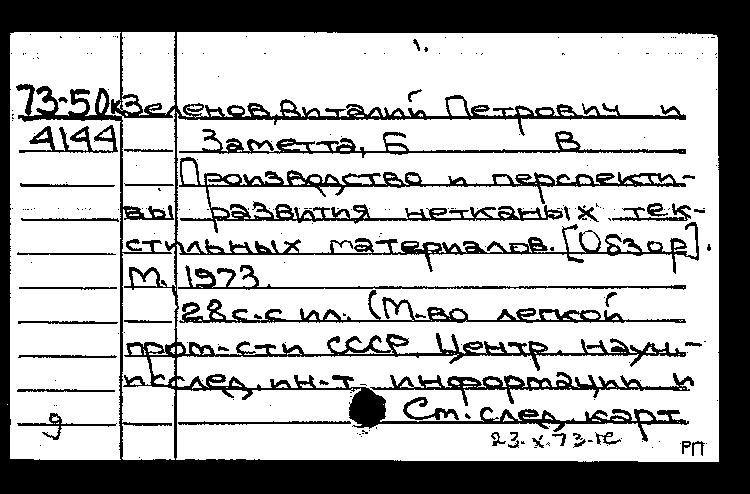 1.
73-50к Зеленов, Виталий Петрович и
4144 Заметта, Б В
Производство и перспекти-
вы развития нетканых тек-
стильных материалов. [Обзор].
М., 1973.
28 с. с ил. (М-во легкой
пром-сти СССР. Центр. науч.-
исслед. ин-т информации и
9 Ст. след. карт.
23.X.73-ге
РП